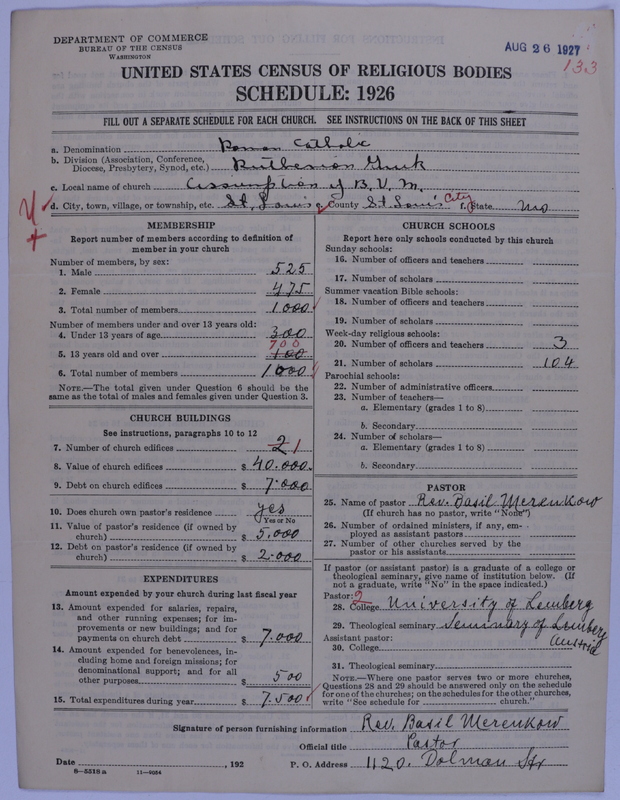 DEPARTMENT OF COMMERCE
BUREAU OF THE CENSUS
WASHINGTON
AUG 26 1927
133
UNITED STATES CENSUS OF RELIGIOUS BODIES
SCHEDULE: 1926
FILL OUT A SEPARATE SCHEDULE FOR EACH CHURCH. SEE INSTRUCTIONS ON THE BACK OF THIS SHEET
a. Denomination Roman Catholic
b. Division (Association, Conference, Diocese, Presbytery, Synod, etc.) Ruthenian Greek
c. Local name of church Assumption of B. V. M.
d. City, town, village, or township, etc. St. Louis e. County St. Louis City f. State Mo
MEMBERSHIP
Report number of members according to definition of
member in your church
Number of members, by sex:
1. Male 525
2. Female 475
3. Total number of members 1000
Number of members under and over 13 years old:
4. Under 13 years of age 300
700
5. 13 years old and over 100
6. Total number of members 1000
NOTE.—The total given under Question 6 should be the
same as the total of males and females given under Question 3.
CHURCH BUILDINGS
See instructions, paragraphs 10 to 12
7. Number of church edifices 2 1
8. Value of church edifices $ 40.000.
9. Debt on church edifices $ 7.000
10. Does church own pastor's residence yes
Yes or No
11. Value of pastor's residence (if owned by
church) $ 5.000
12. Debt on pastor's residence (if owned by
church) $ 2.000
EXPENDITURES
Amount expended by your church during last fiscal year
13. Amount expended for salaries, repairs,
and other running expenses; for im-
provements or new buildings; and for
payments on church debt $ 7.000
14. Amount expended for benevolences, in-
cluding home and foreign missions; for
denominational support; and for all
other purposes $ 500
15. Total expenditures during year $ 7.500
CHURCH SCHOOLS
Report here only schools conducted by this church
Sunday schools:
16. Number of officers and teachers
17. Number of scholars
Summer vacation Bible schools:
18. Number of officers and teachers
19. Number of scholars
Week-day religious schools:
20. Number of officers and teachers 3
21. Number of scholars 104
Parochial schools:
22. Number of administrative officers
23. Number of teachers—
a. Elementary (grades 1 to 8)
b. Secondary
24. Number of scholars—
a. Elementary (grades 1 to 8)
b. Secondary
PASTOR
25. Name of pastor Rev. Basil Merenkow
(If church has no pastor, write "None")
26. Number of ordained ministers, if any, em-
ployed as assistant pastors
27. Number of other churches served by the
pastor or his assistants
If pastor (or assistant pastor) is a graduate of a college or
theological seminary, give name of institution below. (If
not a graduate, write "No" in the space indicated.)
Pastor: 2
28. College University of Lemberg
29. Theological seminary Seminary of Lemberg
Austria
Assistant pastor:
30. College
31. Theological seminary
NOTE.—Where one pastor serves two or more churches,
Questions 28 and 29 should be answered only on the schedule
for one of the churches; on the schedules for the other churches,
write "See schedule for church."
Signature of person furnishing information Rev. Basil Merenkow
Official title Pastor
Date , 192 P. O. Address 1120. Dolman Str
8—5518 a 11—8034